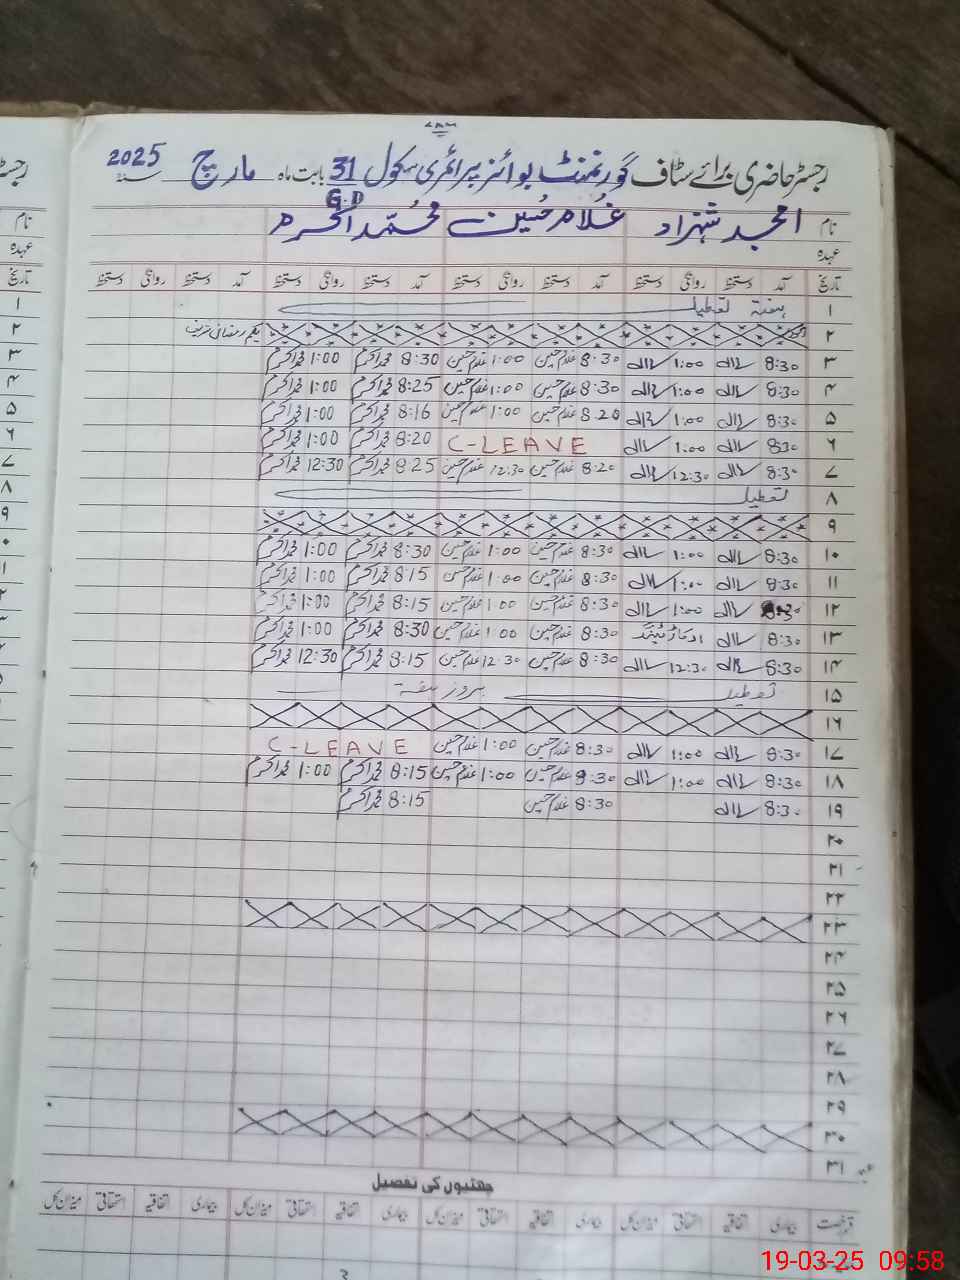 رجسٹر حاضری برائے سٹاف گورنمنٹ بوائز پرائمری سکول 31 بابت ماہ مارچ سنہ 2025
G.D
نام امجد شہزاد غلام حسین محمد اکرم
عہدہ
تاریخ آمد دستخط روانگی دستخط آمد دستخط روانگی دستخط آمد دستخط روانگی دستخط آمد دستخط روانگی دستخط
۱ ہفتہ تعطیل
۲ اتوار یکم رمضان شریف
۳ 8:30 1:00 8:30 غلام حسین 1:00 غلام حسین 8:30 محمد اکرم 1:00 محمد اکرم
۴ 8:30 1:00 8:30 غلام حسین 1:00 غلام حسین 8:25 محمد اکرم 1:00 محمد اکرم
۵ 8:30 1:00 8:20 غلام حسین 1:00 غلام حسین 8:16 محمد اکرم 1:00 محمد اکرم
۶ 8:30 1:00 C-LEAVE 8:20 محمد اکرم 1:00 محمد اکرم
۷ 8:30 12:30 8:20 غلام حسین 12:30 غلام حسین 8:25 محمد اکرم 12:30 محمد اکرم
۸ تعطیل
۹
۱۰ 8:30 1:00 8:30 غلام حسین 1:00 غلام حسین 8:30 محمد اکرم 1:00 محمد اکرم
۱۱ 8:30 1:00 8:30 غلام حسین 1:00 غلام حسین 8:15 محمد اکرم 1:00 محمد اکرم
۱۲ 1:00 8:30 غلام حسین 1:00 غلام حسین 8:15 محمد اکرم 1:00 محمد اکرم
۱۳ 8:30 8:30 غلام حسین 1:00 غلام حسین 8:30 محمد اکرم 1:00 محمد اکرم
۱۴ 8:30 12:30 8:30 غلام حسین 12:30 غلام حسین 8:15 محمد اکرم 12:30 محمد اکرم
۱۵ تعطیل بروز ہفتہ
۱۶
۱۷ 8:30 1:00 8:30 غلام حسین 1:00 غلام حسین C-LEAVE
۱۸ 8:30 1:00 8:30 غلام حسین 1:00 غلام حسین 8:15 محمد اکرم 1:00 محمد اکرم
۱۹ 8:30 8:30 غلام حسین 8:15 محمد اکرم
۲۰
۲۱
۲۲
۲۳
۲۴
۲۵
۲۶
۲۷
۲۸
۲۹
۳۰
۳۱
چھٹیوں کی تفصیل
قسم رخصت بیماری اتفاقیہ استحقاقی میزان کل بیماری اتفاقیہ استحقاقی میزان کل بیماری اتفاقیہ استحقاقی میزان کل بیماری اتفاقیہ استحقاقی میزان کل
19-03-25 09:58